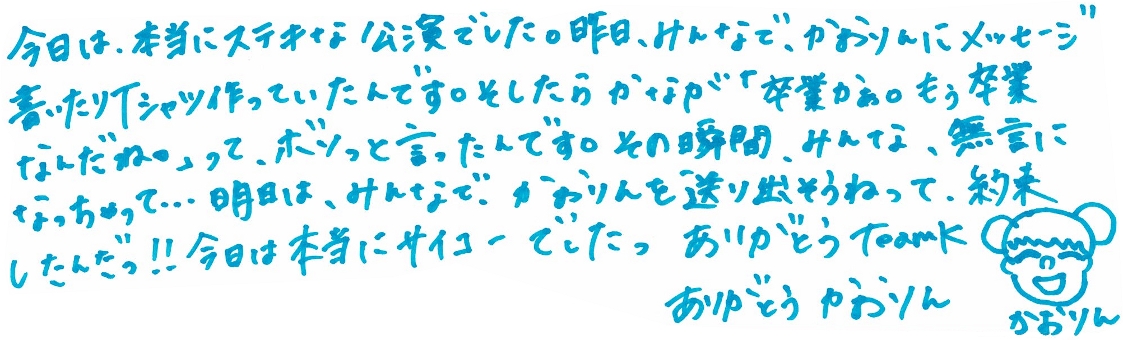 今日は、本当にステキな公演でした。昨日、みんなで、かおりんにメッセージ
書いたりTシャツ作っていたんです。そしたらかなが「卒業かぁ。もう卒業
なんだね。」って、ボソっと言ったんです。その瞬間、みんな、無言に
なっちゃって…明日は、みんなで、かおりんを送り出そうねって、約束
したんだっ!!今日は本当にサイコーでしたっ ありがとうTeamK
ありがとうかおりん
かおりん